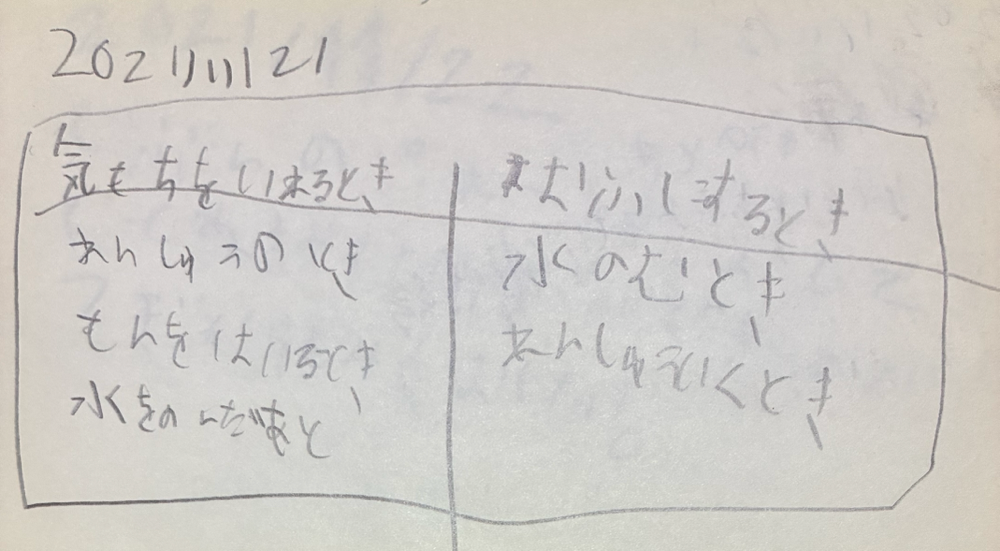 2021/11/21
気もちをいれるとき
れんしゅうのとき
もんをはいるとき
水をのんだあと
するとき
水のむとき
れんしゅういくとき